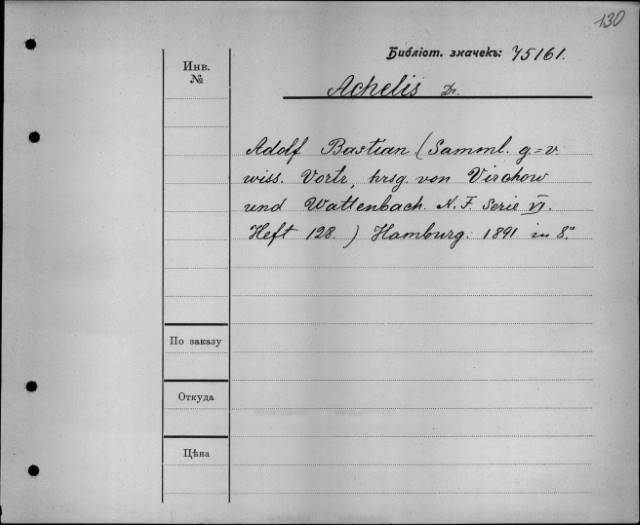 130
Библіот. значекъ: 75161.
Инв.
№
Achelis Dr.
Adolf Bastian (Samml. g=v.
wiss. Vortr., hrsg. von Virchow
und Wattenbach. N. F. Serie VI.
Heft 128.) Hamburg. 1891 in 8.º
По заказу
Откуда
Цѣна